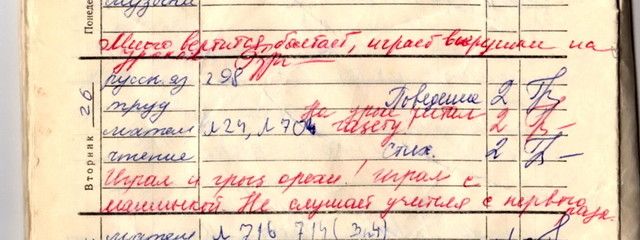 Понеде
музыка
Много вертится, болтает, играет в игрушки на
уроках.
Вторник 26
русск. яз 298
труд Поведение 2
На уроке читал
матем №24, №704 газету! 2
чтение Стих. 2
Играл и грыз орехи! играл с
машинкой. Не слушает учителя с первого
раза.
матем № 716 714 (3,4)